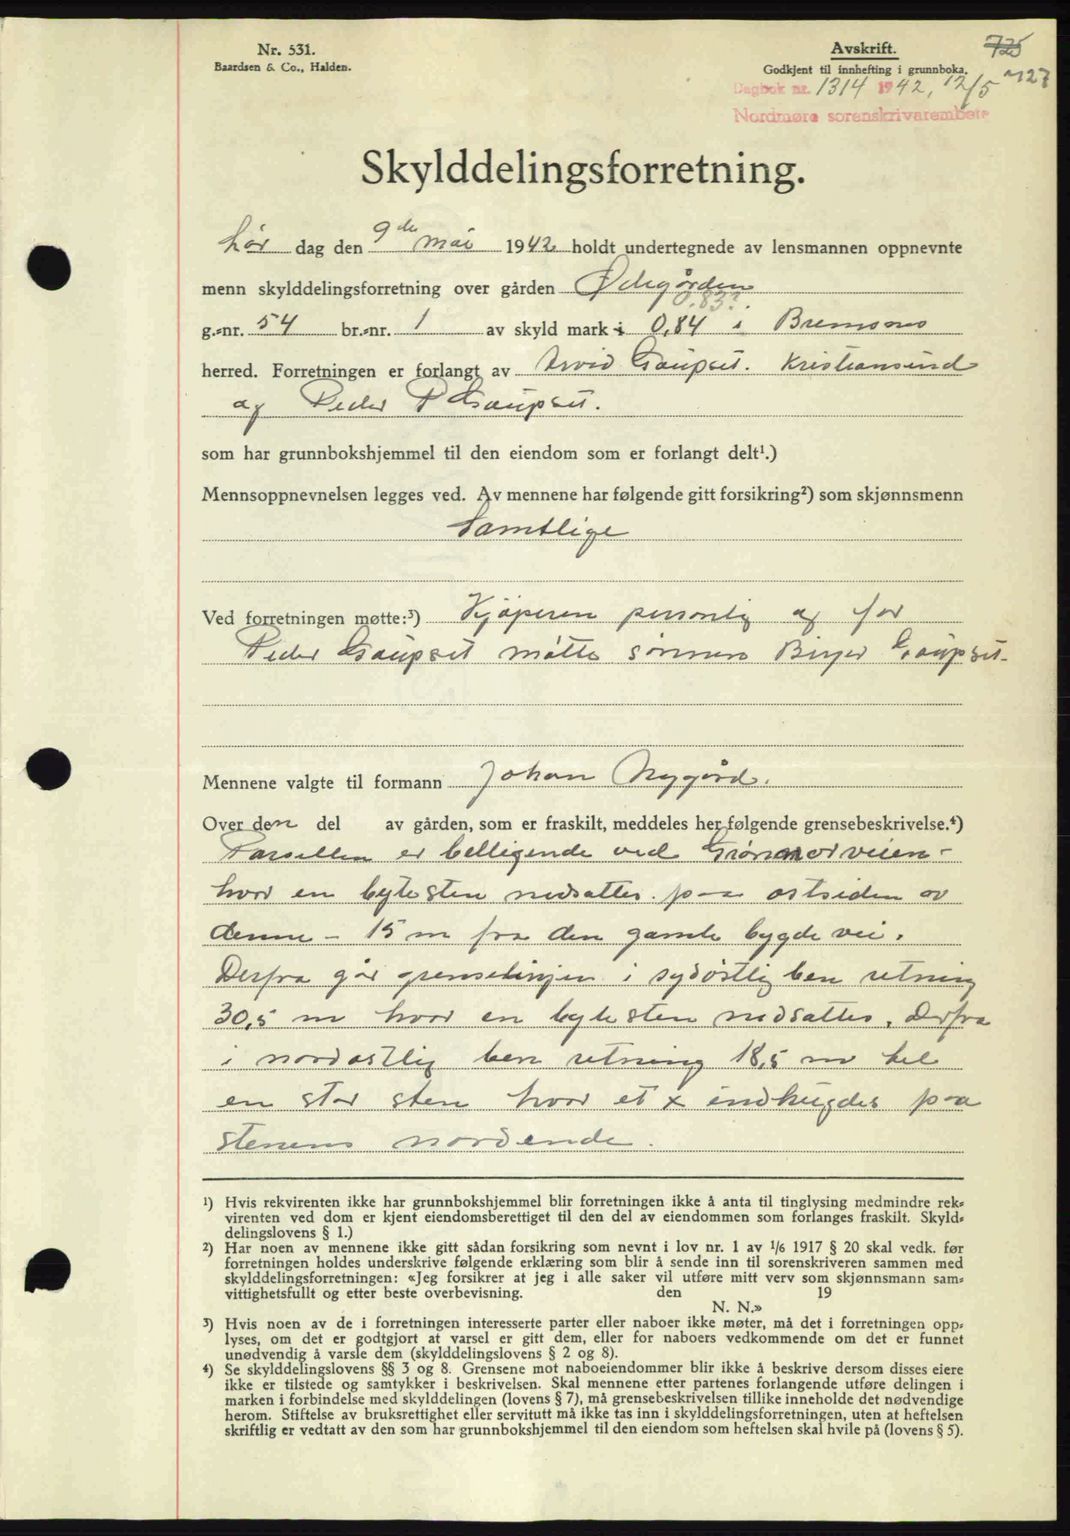 Nr. 531.
Baardsen & Co., Halden.
Avskrift.
Godkjent til innhefting i grunnboka.
725
727
Dagbok nr. 1314 1942, 12/5
Nordmøre sorenskrivarembete
Skylddelingsforretning.
hør dag den 9de mai 1942 holdt undertegnede av lensmannen oppnevnte
menn skylddelingsforretning over gården Ødegården
0.83?
g.-nr. 54 br.-nr. 1 av skyld mark i 0,84 i Bremsnes
herred. Forretningen er forlangt av Arvid Gaupset. Kristiansund
og Peder P Gaupset.
som har grunnbokshjemmel til den eiendom som er forlangt delt¹.)
Mennsoppnevnelsen legges ved. Av mennene har følgende gitt forsikring²) som skjønnsmenn
Samtlige
Ved forretningen møtte:³) Kjøperen personlig og for
Peder Gaupset møtte sønnen Birger Gaupset.
Mennene valgte til formann Johan Nygård.
Over den del av gården, som er fraskilt, meddeles her følgende grensebeskrivelse.⁴)
Parsellen er beliggende ved Grønmorveien -
hvor en bytesten nedsattes paa østsiden av
denne - 15 m fra den gamle bygdevei.
Derfra går grenselinjen i sydøstlig ben retning
30,5 m hvor en bytesten nedsattes. Derfra
i nordøstlig ben retning 18,5 m til
en stor sten hvor et x indhugdes paa
stenens nordende.
¹) Hvis rekvirenten ikke har grunnbokshjemmel blir forretningen ikke å anta til tinglysing medmindre rek-
virenten ved dom er kjent eiendomsberettiget til den del av eiendommen som forlanges fraskilt. Skyld-
delingslovens § 1.)
²) Har noen av mennene ikke gitt sådan forsikring som nevnt i lov nr. 1 av 1/6 1917 § 20 skal vedk. før
forretningen holdes underskrive følgende erklæring som blir å sende inn til sorenskriveren sammen med
skylddelingsforretningen: «Jeg forsikrer at jeg i alle saker vil utføre mitt verv som skjønnsmann sam-
vittighetsfullt og etter beste overbevisning. den 19
N. N.»
³) Hvis noen av de i forretningen interesserte parter eller naboer ikke møter, må det i forretningen opp-
lyses, om det er godtgjort at varsel er gitt dem, eller for naboers vedkommende om det er funnet
unødvendig å varsle dem (skylddelingslovens § 2 og 8).
⁴) Se skylddelingslovens §§ 3 og 8. Grensene mot naboeiendommer blir ikke å beskrive dersom disses eiere
ikke er tilstede og samtykker i beskrivelsen. Skal mennene etter partenes forlangende utføre delingen i
marken i forbindelse med skylddelingen (lovens § 7), må grensebeskrivelsen tillike inneholde det nødvendige
herom. Stiftelse av bruksrettighet eller servitutt må ikke tas inn i skylddelingsforretningen, uten at heftelsen
skriftlig er vedtatt av den som har grunnbokshjemmel til den eiendom som heftelsen skal hvile på (lovens § 5).